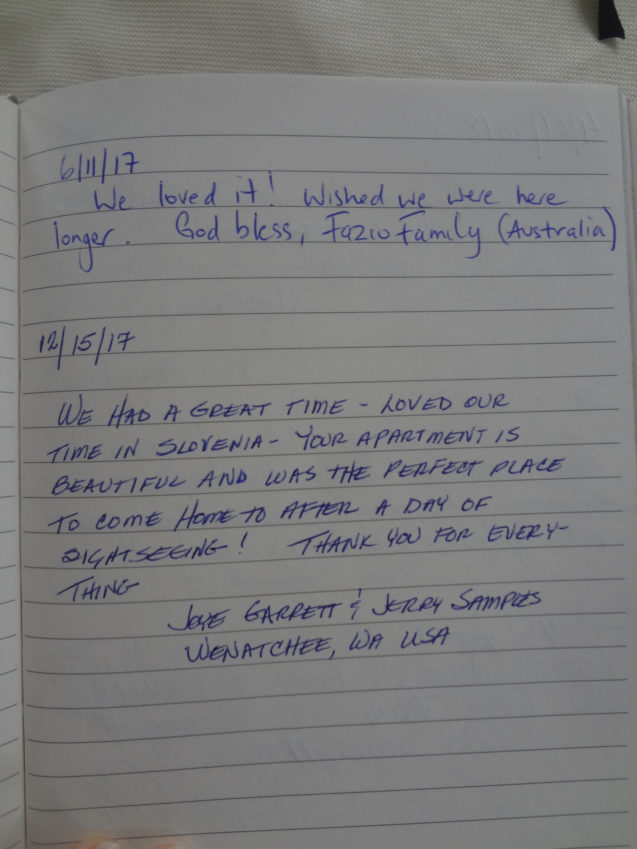 6/11/17
We loved it! Wished we were here
longer. God bless, Fazio Family (Australia)
12/15/17
WE HAD A GREAT TIME - LOVED OUR
TIME IN SLOVENIA - YOUR APARTMENT IS
BEAUTIFUL AND WAS THE PERFECT PLACE
TO COME HOME TO AFTER A DAY OF
SIGHTSEEING! THANK YOU FOR EVERY-
THING
GARRETT & JERRY SAMPLES
WENATCHEE, WA USA